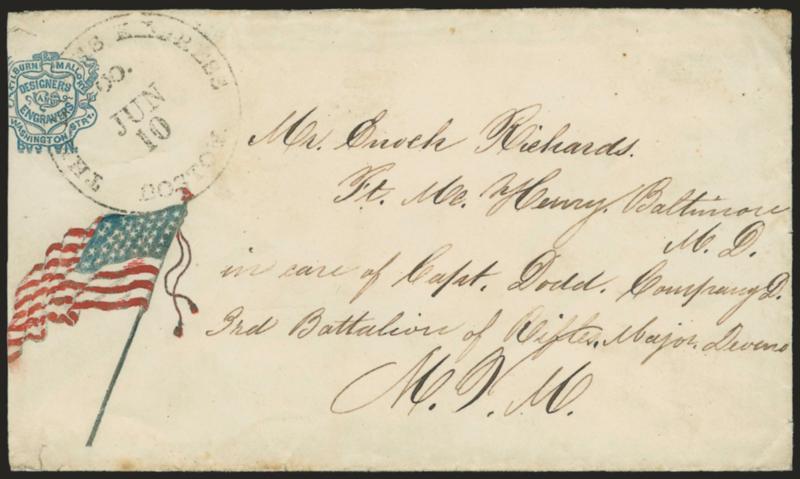 THE ADAMS EXPRESS CO.
JUN
10
BOSTON
KILBURN MALLORY
DESIGNERS
AND
ENGRAVERS
WASHINGTON STRT.
BOSTON
Mr. Enoch Richards.
Ft. Mc. Henry. Baltimore
M. D.
in care of Capt. Dodd. Company D.
3rd Battalion of Rifles, Major. Devens
M. V. M.